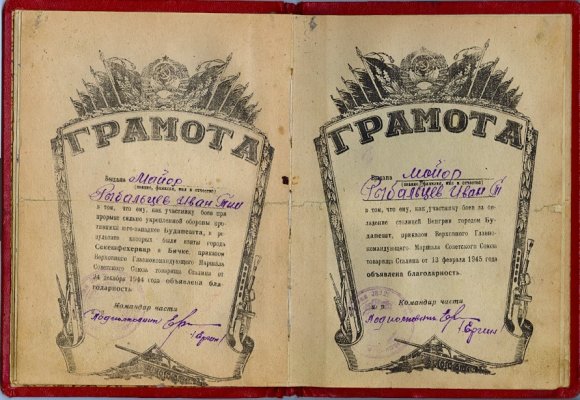 ГРАМОТА
Выдана Майор
(звание, фамилия, имя и отчество)
Рыбальцев Иван Тим
в том, что ему, как участнику боев при
прорыве сильно укрепленной обороны про-
тивника юго-западнее Будапешта, в ре-
зультате которых были взяты города
Секешфехервар и Бичке, приказом
Верховного Главнокомандующего Маршала
Советского Союза товарища Сталина от
24 декабря 1944 года объявлена бла-
годарность.
Командир части
Подполковник
ГРАМОТА
Выдана Майор
(звание, фамилия, имя и отчество)
Рыбальцев Иван Т
в том, что ему, как участнику боев за ов-
ладение столицей Венгрии городом Бу-
дапешт, приказом Верховного Главно-
командующего Маршала Советского Союза
товарища Сталина от 13 февраля 1945 года
объявлена благодарность.
Командир части
Подполковник